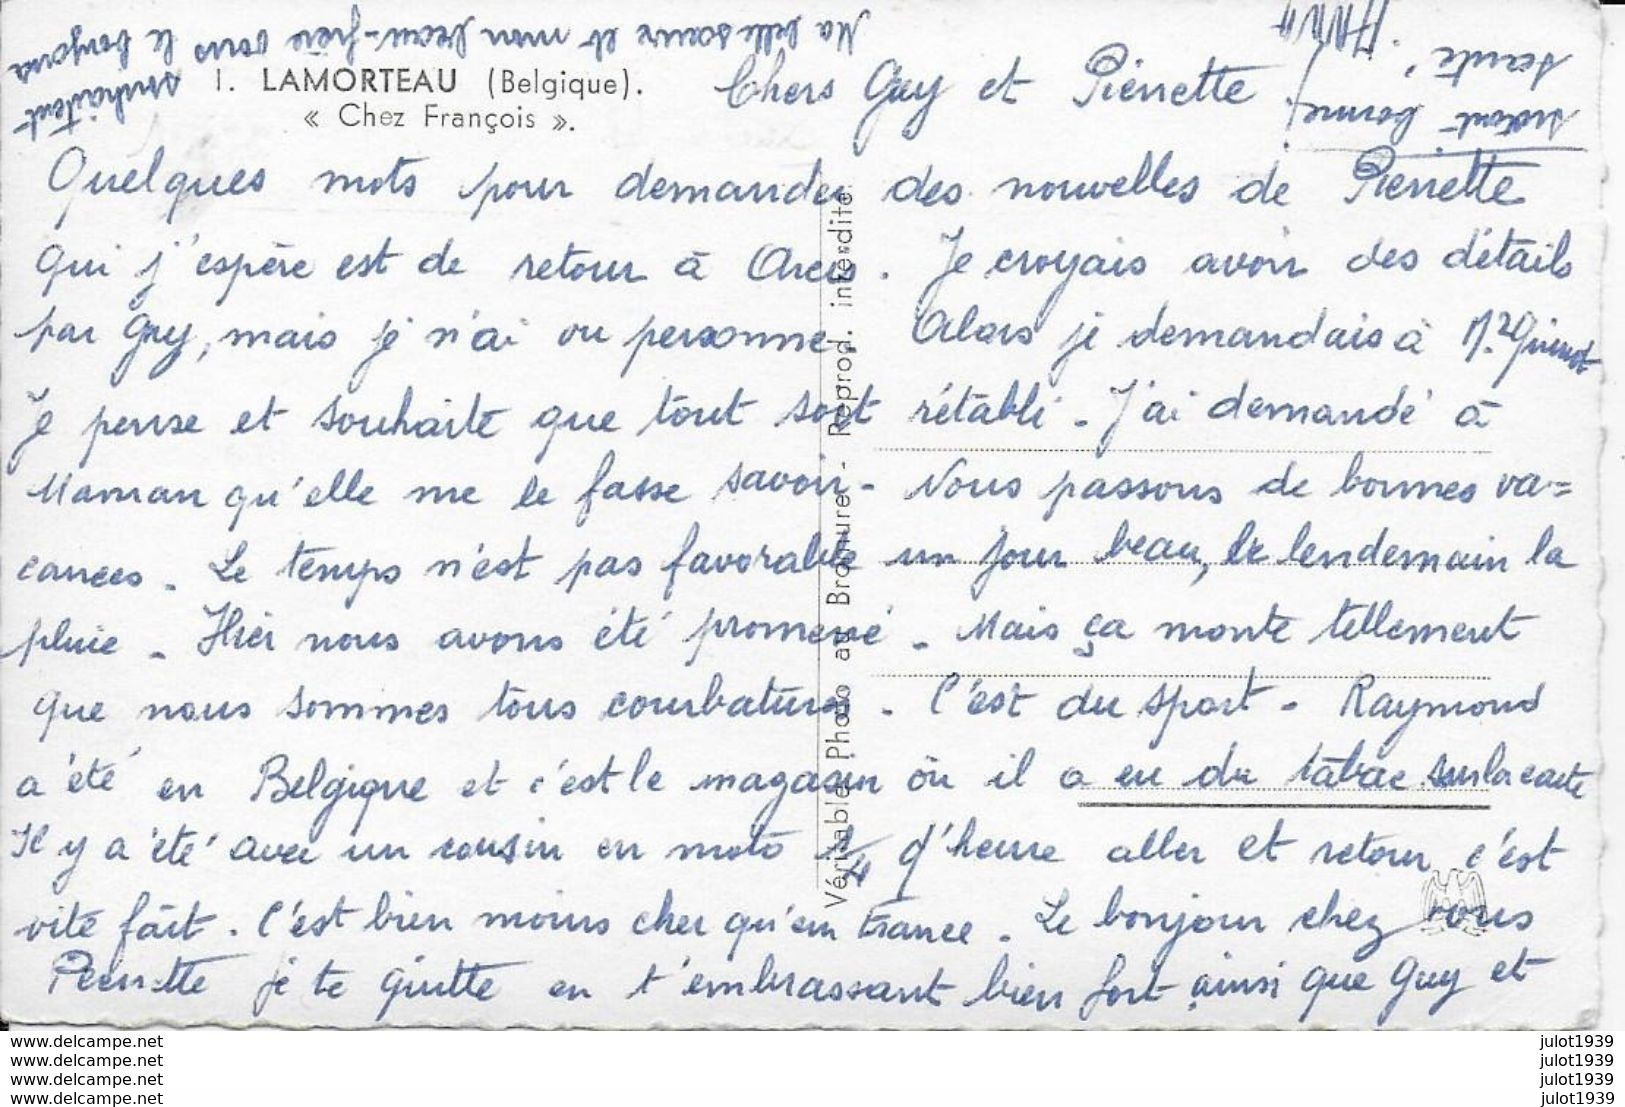 1. LAMORTEAU (Belgique).
« Chez François ».
Chers Guy et Pierrette
Quelques mots pour demander des nouvelles de Pierrette
qui j'espère est de retour à Arcis. Je croyais avoir des détails
par Guy, mais je n'ai vu personne. Alors je demandais à
Je pense et souhaite que tout soit rétabli - J'ai demandé à
Maman qu'elle me le fasse savoir - Nous passons de bonnes va=
cances. Le temps n'est pas favorable un jour beau, le lendemain la
pluie - Hier nous avons été promené - Mais ça monte tellement
que nous sommes tous courbaturés - C'est du sport - Raymond
a été en Belgique et c'est le magasin où il a eu du tabac sur la carte
Il y a été avec un cousin en moto d'heure aller et retour c'est
vite fait. C'est bien moins cher qu'en France. Le bonjour chez vous
Pierrette je te quitte en t'embrassant bien fort ainsi que Guy et
surtout bonne
santé.
Ma belle sœur et mon beau-frère vous
souhaitent le bonjour
Véritable Photo au Bromure - Reprod. interdite.
www.delcampe.net
www.delcampe.net
www.delcampe.net
www.delcampe.net
julot1939
julot1939
julot1939
julot1939